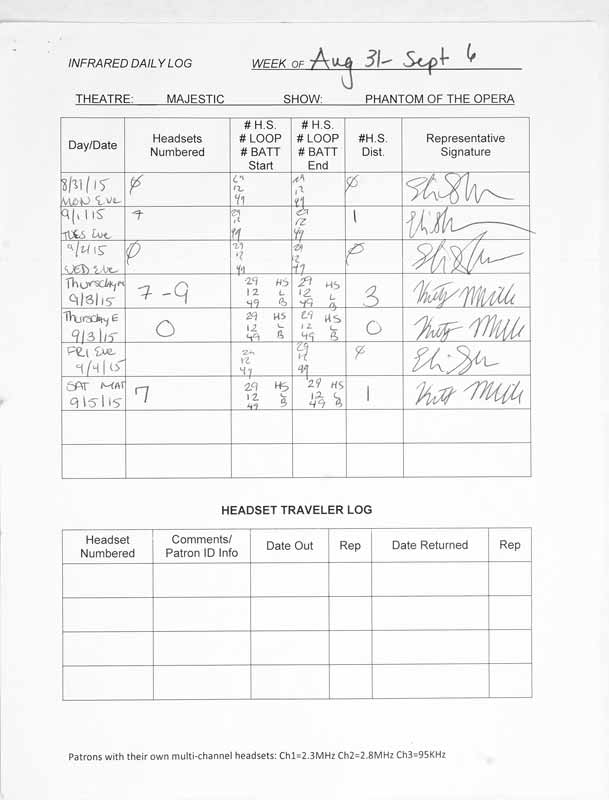 INFRARED DAILY LOG WEEK OF Aug 31- Sept 6
THEATRE: MAJESTIC SHOW: PHANTOM OF THE OPERA
Day/Date Headsets Numbered # H.S. # LOOP # BATT Start # H.S. # LOOP # BATT End #H.S. Dist. Representative Signature
8/31/15 MON Eve Ø 29 12 49 29 12 49 Ø
9/1/15 TUES Eve 7 29 12 49 29 12 49 1
9/2/15 WED Eve Ø 29 12 49 29 12 47 Ø
Thursday M 9/3/15 7-9 29 HS 12 L 49 B 29 HS 12 L 49 B 3
Thursday E 9/3/15 0 29 HS 12 L 49 B 29 HS 12 L 49 B 0
FRI Eve 9/4/15 29 12 47 29 12 49 Ø
SAT MAT 9/5/15 7 29 HS 12 L 49 B 29 HS 12 L 49 B 1
HEADSET TRAVELER LOG
Headset Numbered Comments/ Patron ID Info Date Out Rep Date Returned Rep
Patrons with their own multi-channel headsets: Ch1=2.3MHz Ch2=2.8MHz Ch3=95KHz